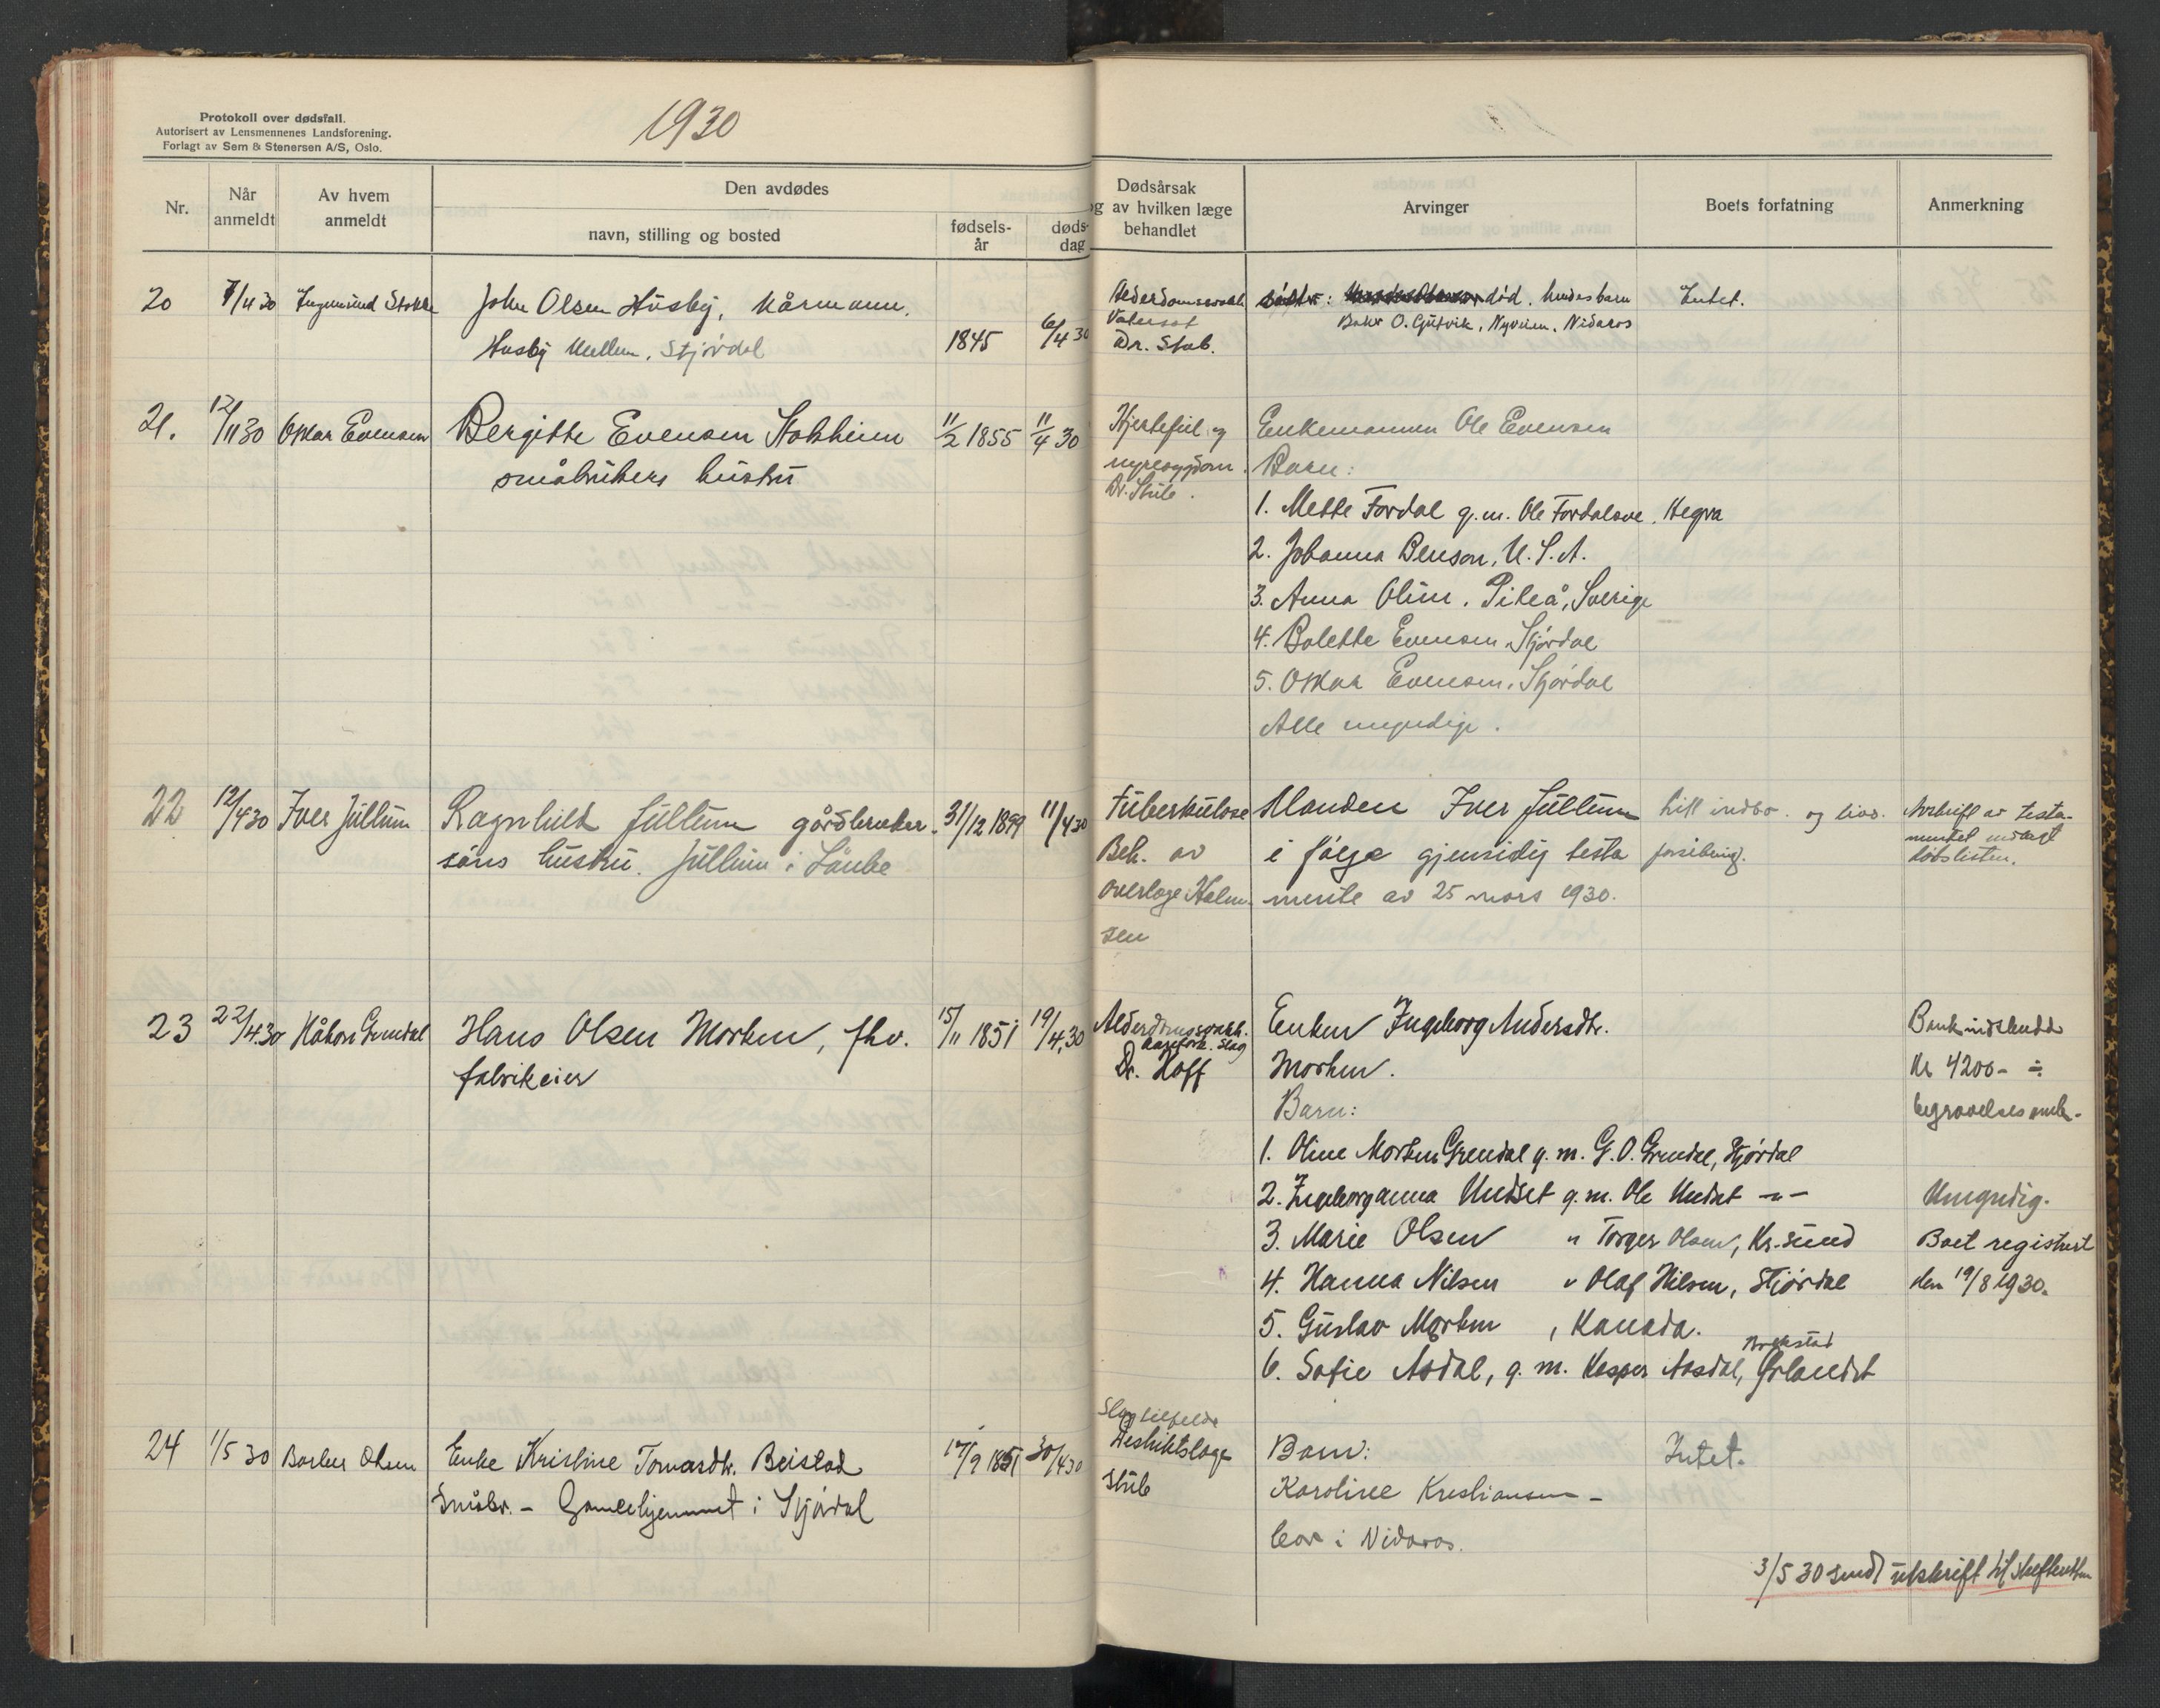 Protokoll over dødsfall.
Autorisert av Lensmennenes Landsforening.
Forlagt av Sem & Stenersen A/S, Oslo.
1930
Nr.
Når anmeldt
Av hvem anmeldt
Den avdødes
navn, stilling og bosted
fødsels-
år
døds-
dag
Dødsårsak
og av hvilken læge
behandlet
Arvinger
Boets forfatning
Anmerkning
20 7/4 30 Ingemund Stokke John Olsen Husby, kårmann.
Husby Mellem, Stjørdal 1845 6/4 30
Alderdomssvakh.
Dr. Stub.
død. hendes barn
O. Gutvik, Nyveien, Nidaros
Intet.
21. 12/4 30 Oskar Evensen Bergitte Evensen Stokheim 11/2 1855 11/4 30
småbrukers hustru
Hjertefeil og
nyresygdom.
Dr. Stub.
Enkemannen Ole Evensen
Barn:
1. Mette Fordal g.m. Ole Fordalsve, Hegra
2. Johanna Benson, U.S.A.
3. Anna Olin, Piteå, Sverige
4. Bolette Evensen, Stjørdal
5. Oskar Evensen, Stjørdal
Alle myndige.
22 12/4 30 Iver Jullum Ragnhild Jullum gårdbruker- 31/12 1899 11/4 30
søns hustru. Jullum i Lånke
Tuberkulose
Beh. av
overlæge Halm-
sen
Manden Iver Jullum
i følge gjensidig testa
mente av 25 mars 1930.
Litt indbo. og livs.
forsikring.
Avskrift av testa-
mentet indtagt
dødslisten.
23 22/4 30 Håkon Grendal Hans Olsen Morken, fhv. 15/11 1851 19/4 30
fabrikeier
Alderdomssvakh.
slag
Dr. Hoff
Enken Ingeborg Andersdtr.
Morken.
Barn:
1. Oline Morken Grendal g.m. G.O. Grendal, Stjørdal
2. Ingeborganna Undset g.m. Ole Undset -"-
3. Marie Olsen " Torger Olsen, Kr.sund
4. Hanna Nilsen " Olaf Nilsen, Stjørdal
5. Gustav Morken, Kanada.
Brekstad
6. Sofie Asdal, g.m. Kasper Aasdal, Ørlandet
Bankindskudd
Kr 4200- ÷
begravelsesomk.
Umyndig.
Boet registrert
den 19/8 1930.
24 1/5 30 Olsen Enke Kristine Tomasdtr. Beistad 17/9 1851 30/4 30
Småbr. - Gamlehjemmet i Stjørdal
Slagtilfelde
Distriktslæge
Stub
Barn:
Karoline Kristiansen -
bor i Nidaros.
Intet.
3/5 30 sendt utskrift til skifteretten